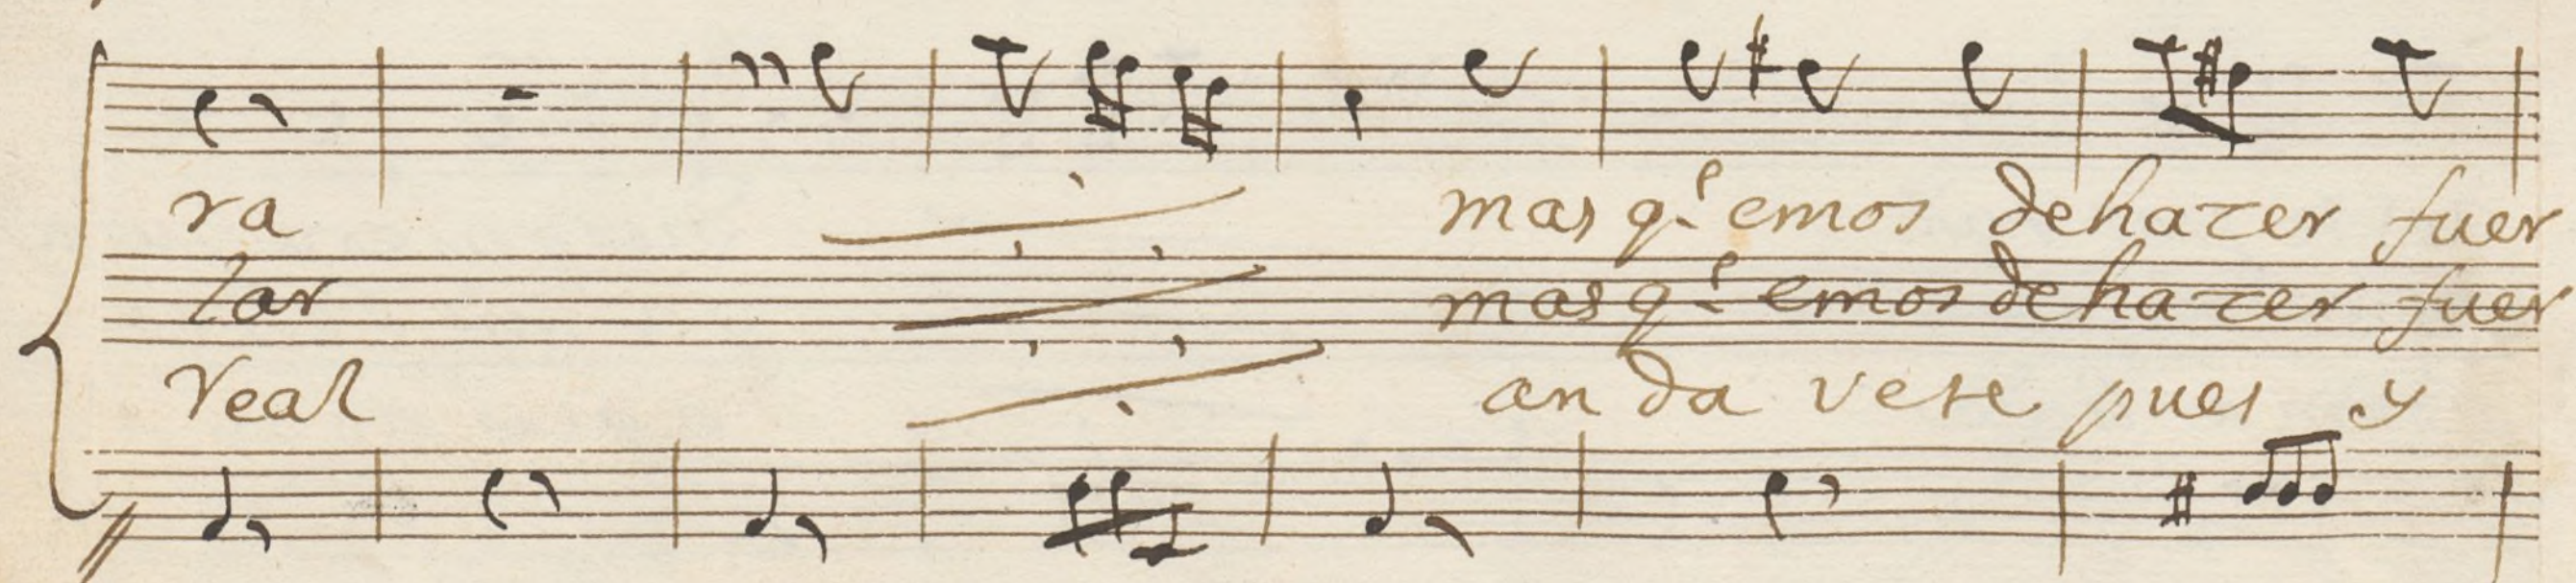 ra mas q.e emos de hazer fuer
lar mas q.e emos de hazer fuer
Real an da vete pues y